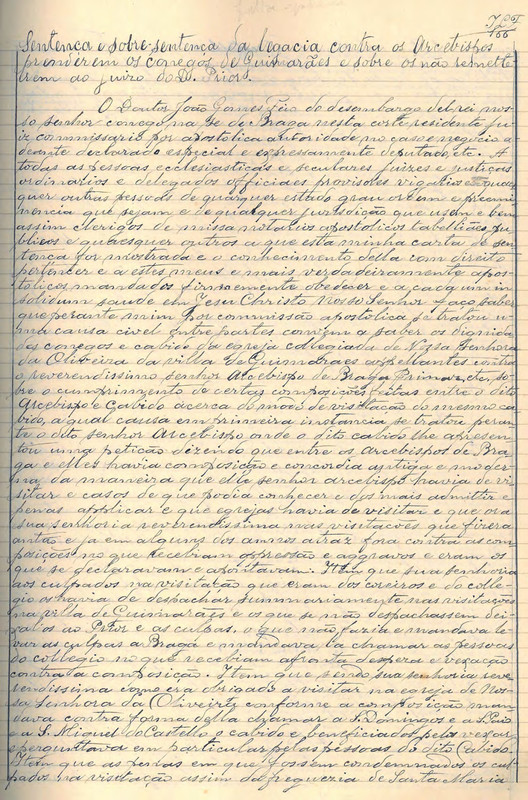 Sentença e sobre-sentença da legacia contra os Arcebispos
prenderem os conegos de Guimarães e sobre os não remette
rem ao juizo do D. Prior.
O Doutor João Gomes do desembargo del-rei nos-
so senhor conego na Sé de Braga nesta corte residente ju-
iz commissario por apostolica autoridade no caso e negocio a
deante declarado especial e expressamente deputado, etc. A
todas as pessoas ecclesiasticas e seculares juizes e justiças
ordinarios e delegados officiaes provisores vigarios e quaes
quer outras pessoas de qualquer estado grau ordem e preemi
nencia que sejam e de qualquer jurisdição que usam e bem
assim clerigos de missa notarios apostolicos tabelliães pu-
blicos e quaesquer outros a que esta minha carta de sen
tença for mostrada e o conhecimento della com direito
pertencer e a estes meus e mais verdadeiramente apos-
tolicos mandados firmemente obedecer e a cada um in
solidum saude em Jesu Christo Nosso Senhor faço saber
que perante mim por commissão apostolica se tratou u-
ma causa civel entre partes convem a saber os dignida
des conegos e cabido da egreja collegiada de Nossa Senhora
da Oliveira da villa de Guimarães appellantes contra
o reverendissimo senhor Arcebispo de Braga Primaz, etc, so-
bre o cumprimento de certas composições feitas entre o dito
Arcebispo e Cabido acerca do modo de visitação do mesmo ca-
bido, a qual causa em primeira instancia se tratou peran
te o dito senhor Arcebispo onde o dito cabido lhe apresen
tou uma petição dizendo que entre os Arcebispos de Bra
ga e elles havia composição e concordia antiga e moder
na da maneira que elle senhor arcebispo havia de vi-
sitar e casos de que podia conhecer e dos mais admittir e
penas applicar e que egrejas havia de visitar e que ora
sua senhoria reverendissima nas visitações que fizera
antão e já em alguns dos annos atraz fora contra as com
posições no que recebiam oppressão e aggravos e eram os
que se declaravam e apontavam. Item que sua senhoria
aos culpados na visitação que eram dos coreiros e do colle
gio os havia de despachar summariamente nas visitações
na villa de Guimarães e os que se não despachassem dei-
xalos ao Prior e as culpas, o que não fazia e mandava le
var as culpas a Braga e mandava lá chamar as pessoas
do collegio no que recebiam afronta despeza e vexação
contra a composição. Item que sendo sua senhoria reve
rendissima como era obrigado a visitar na egreja de Nos-
sa Senhora da Oliveira conforme a composição man
dava contra forma della chamar a S. Domingos e a S. Paio
e a S. Miguel do Castello o cabido e beneficiados pelos vexar
e perguntava em particular pelas pessoas do dito Cabido.
Item que as penas em que fossem condemnados os cul
pados na visitação assim da freguezia de Santa Maria